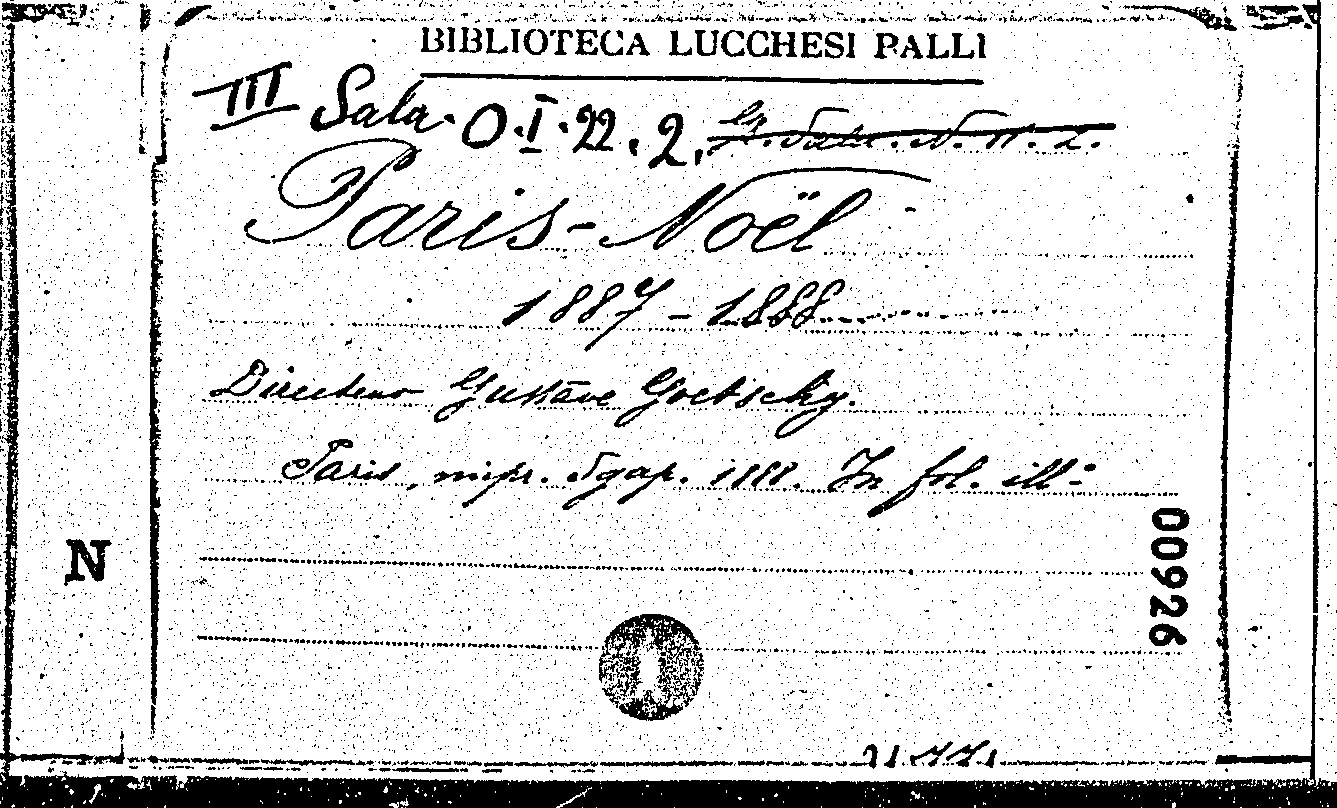 BIBLIOTECA LUCCHESI PALLI
III Sala. O.I.22.2.
Paris-Noël
1887-1888
Directeur Gustave Goetschy.
Paris, impr. 1888. In fol. ill:
N
00926